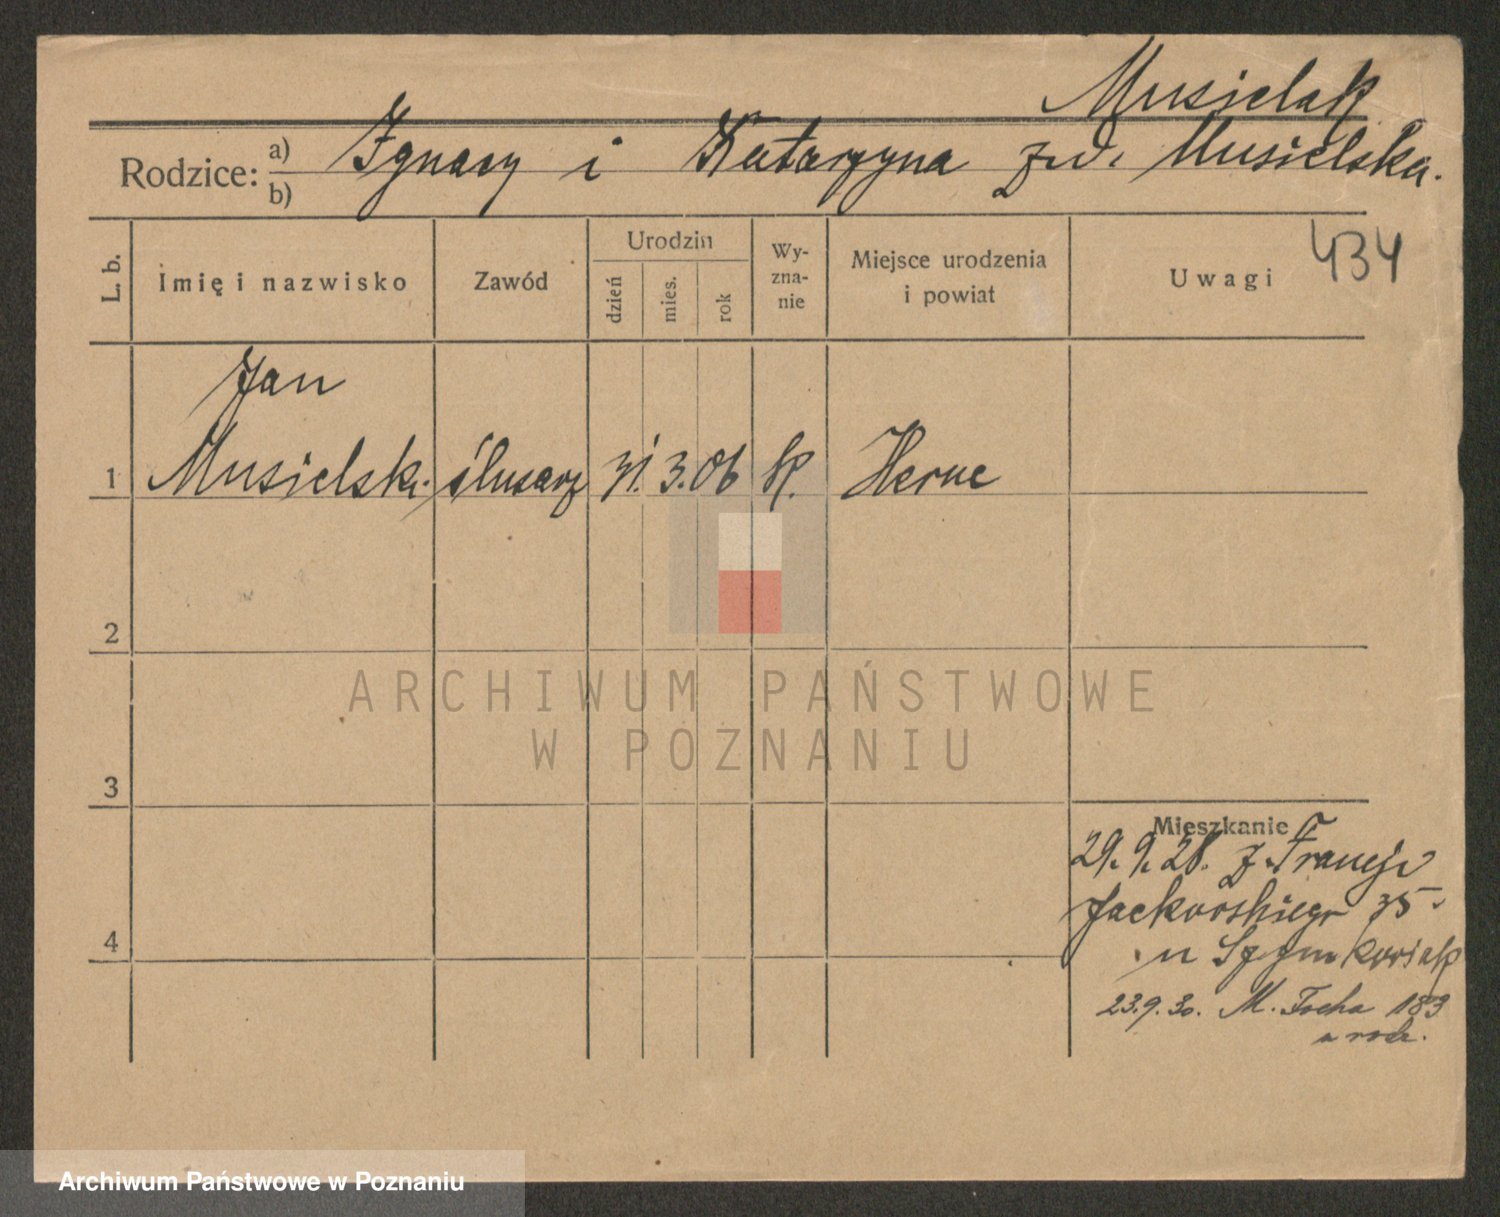 Musielak
Rodzice: a) Ignacy i Katarzyna z d. Musielska.
b)
L. b.
Imię i nazwisko
Zawód
Urodzin
dzień
mies.
rok
Wy-
zna-
nie
Miejsce urodzenia
i powiat
Uwagi
434
Jan
1 Musielski ślusarz 31. 3. 06 k. Herne
2
ARCHIWUM PAŃSTWOWE
W POZNANIU
3
Mieszkanie
29. 9. 28. z Francji
Jackowskiego 35
4
u Szymkowiak
23.9.30. M. Focha 183
u rodz.
Archiwum Państwowe w Poznaniu